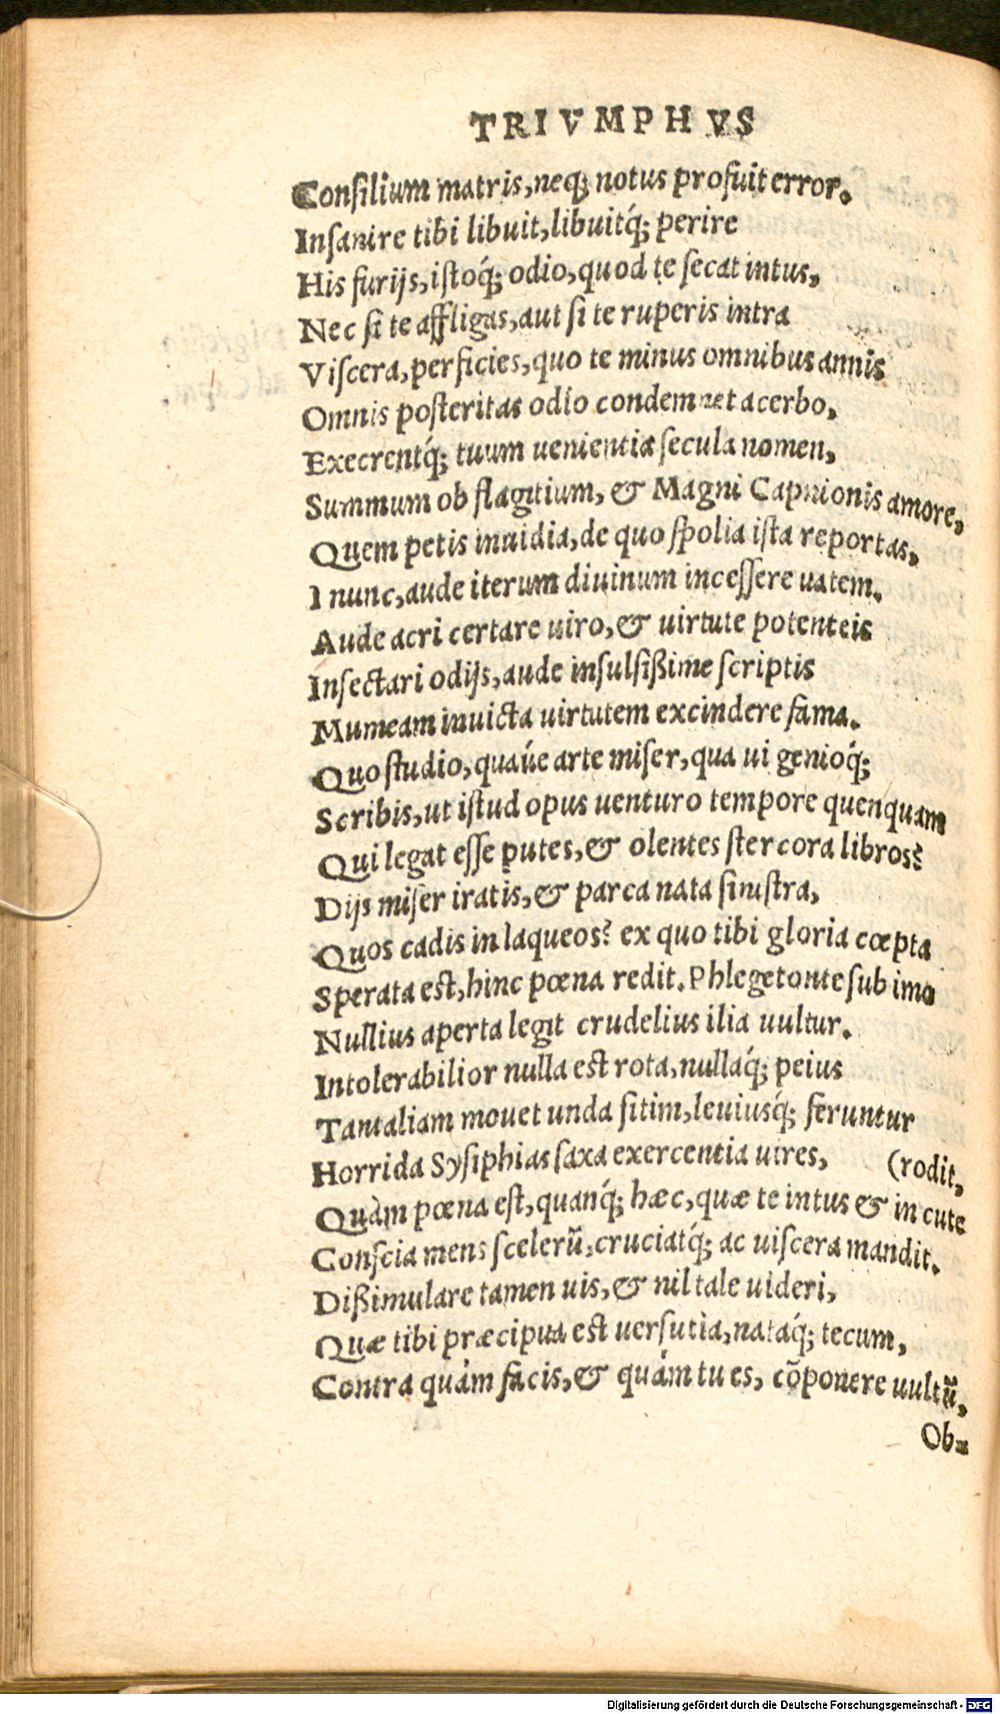 TRIVMPHVS
Consilium matris, neq; notus profuit error.
Insanire tibi libuit, libuitq́; perire
His furijs, istoq́; odio, quod te secat intus,
Nec si te affligas, aut si te ruperis intra
Viscera, perficies, quo te minus omnibus annis
Omnis posteritas odio condemnet acerbo,
Execrentq́; tuum uenientia secula nomen,
Summum ob flagitium, & Magni Capnionis amore,
Quem petis inuidia, de quo spolia ista reportas,
I nunc, aude iterum diuinum incessere uatem.
Aude acri certare uiro, & uirtute potenteis
Insectari odijs, aude insulsißime scriptis
Mumeam inuicta uirtutem excindere fama.
Quo studio, quaúe arte miser, qua ui genioq́;
Scribis, ut istud opus uenturo tempore quenquam
Qui legat esse putes, & olentes stercora libros?
Dijs miser iratis, & parca nata sinistra,
Quos cadis in laqueos? ex quo tibi gloria cœpta
Sperata est, hinc pœna redit. Phlegetonte sub imo
Nullius aperta legit crudelius ilia uultur.
Intolerabilior nulla est rota, nullaq́; peius
Tantaliam mouet unda sitim, leuiusq́; feruntur
Horrida Sysiphias saxa exercentia uires, (rodit,
Quàm pœna est, quanq́; hæc, quæ te intus & in cute
Conscia mens scelerũ, cruciatq́; ac uiscera mandit.
Dißimulare tamen uis, & nil tale uideri,
Quæ tibi præcipua est uersutia, nataq́; tecum,
Contra quàm facis, & quàm tu es, cõponere uultũ,
Ob-
Digitalisierung gefördert durch die Deutsche Forschungsgemeinschaft - DFG